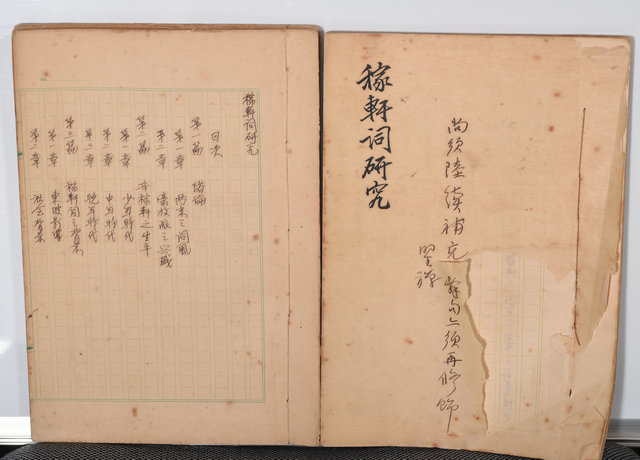 稼軒词研究
尚須陸續補充 辭句亦須再修飾
稼軒詞研究
目次
第一篇 緒論
第一章 兩宋之詞風
豪放派之
第二篇 辛稼軒之生平
第一章 少年時代
第二章 中年時代
第三章 晚年時代
第三篇 稼軒詞之背景
第一章 東坡影響
第二章 社會背景